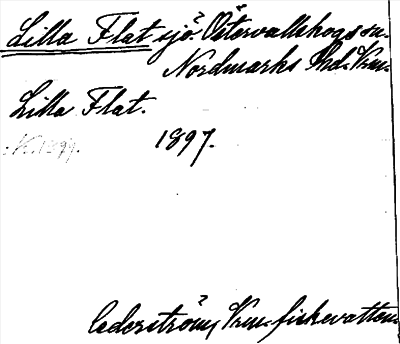 Lilla Flat sjö. Östervallskogs sn.
Nordmarks hd. Vrm.
Lilla Flat.
1897.
Cederström, Vrm. fiskevatten